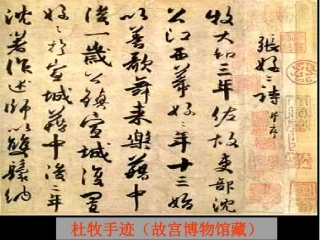 張好〻詩 并序
牧大和三年佐故吏部沈
公江西幕好〻年十三始
以善歌舞来樂籍中
後一歲公鎮宣城復置
好〻於宣城籍中後二年
沈著作述師以雙鬟納
杜牧手迹（故宫博物馆藏）